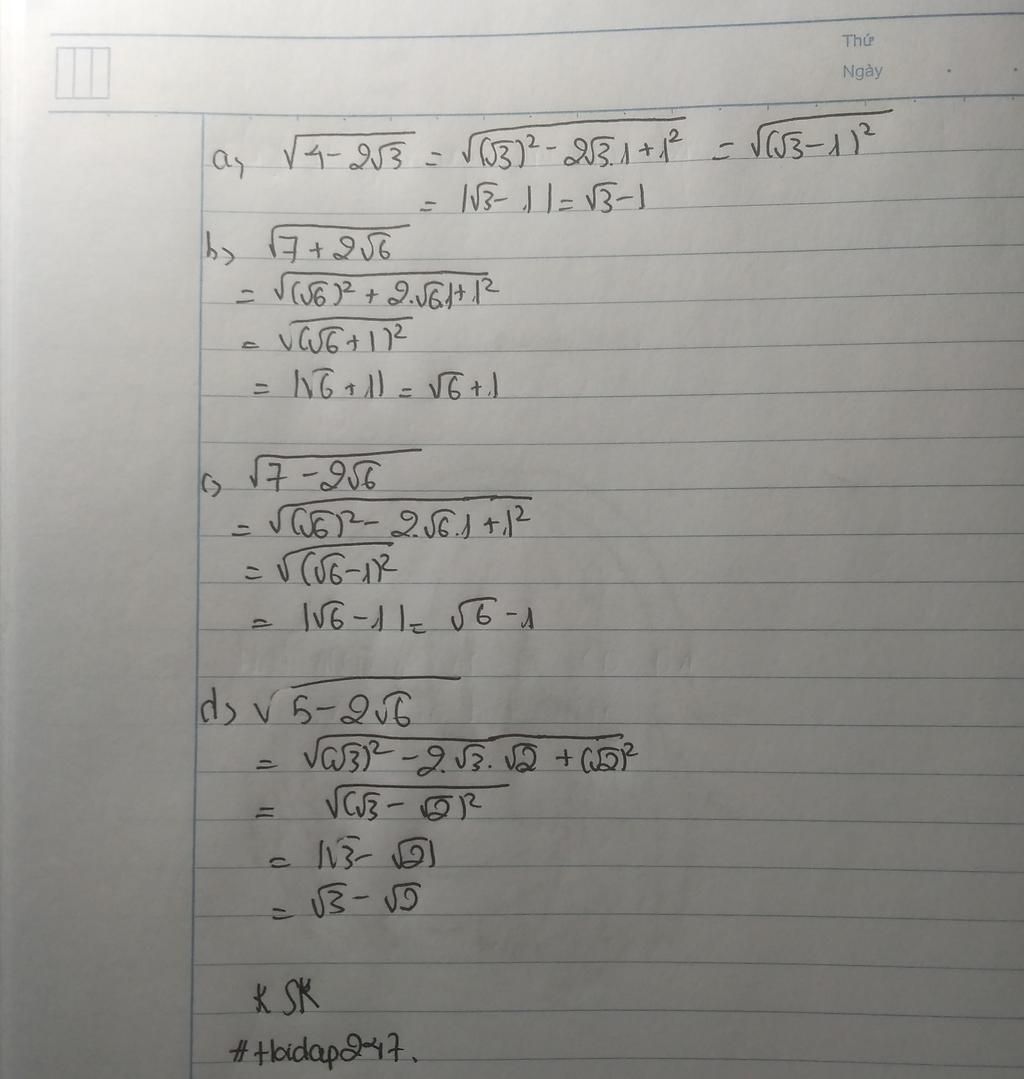 Thứ
Ngày
a, √(4 - 2√3) = √((√3)² - 2√3.1 + 1²) = √((√3 - 1)²)
= |√3 - 1| = √3 - 1
b, √(7 + 2√6)
= √((√6)² + 2.√6.1 + 1²)
= √((√6 + 1)²)
= |√6 + 1| = √6 + 1
c, √(7 - 2√6)
= √((√6)² - 2.√6.1 + 1²)
= √((√6 - 1)²)
= |√6 - 1| = √6 - 1
d, √(5 - 2√6)
= √((√3)² - 2.√3.√2 + (√2)²)
= √((√3 - √2)²)
= |√3 - √2|
= √3 - √2
* SK
#hoidap247.